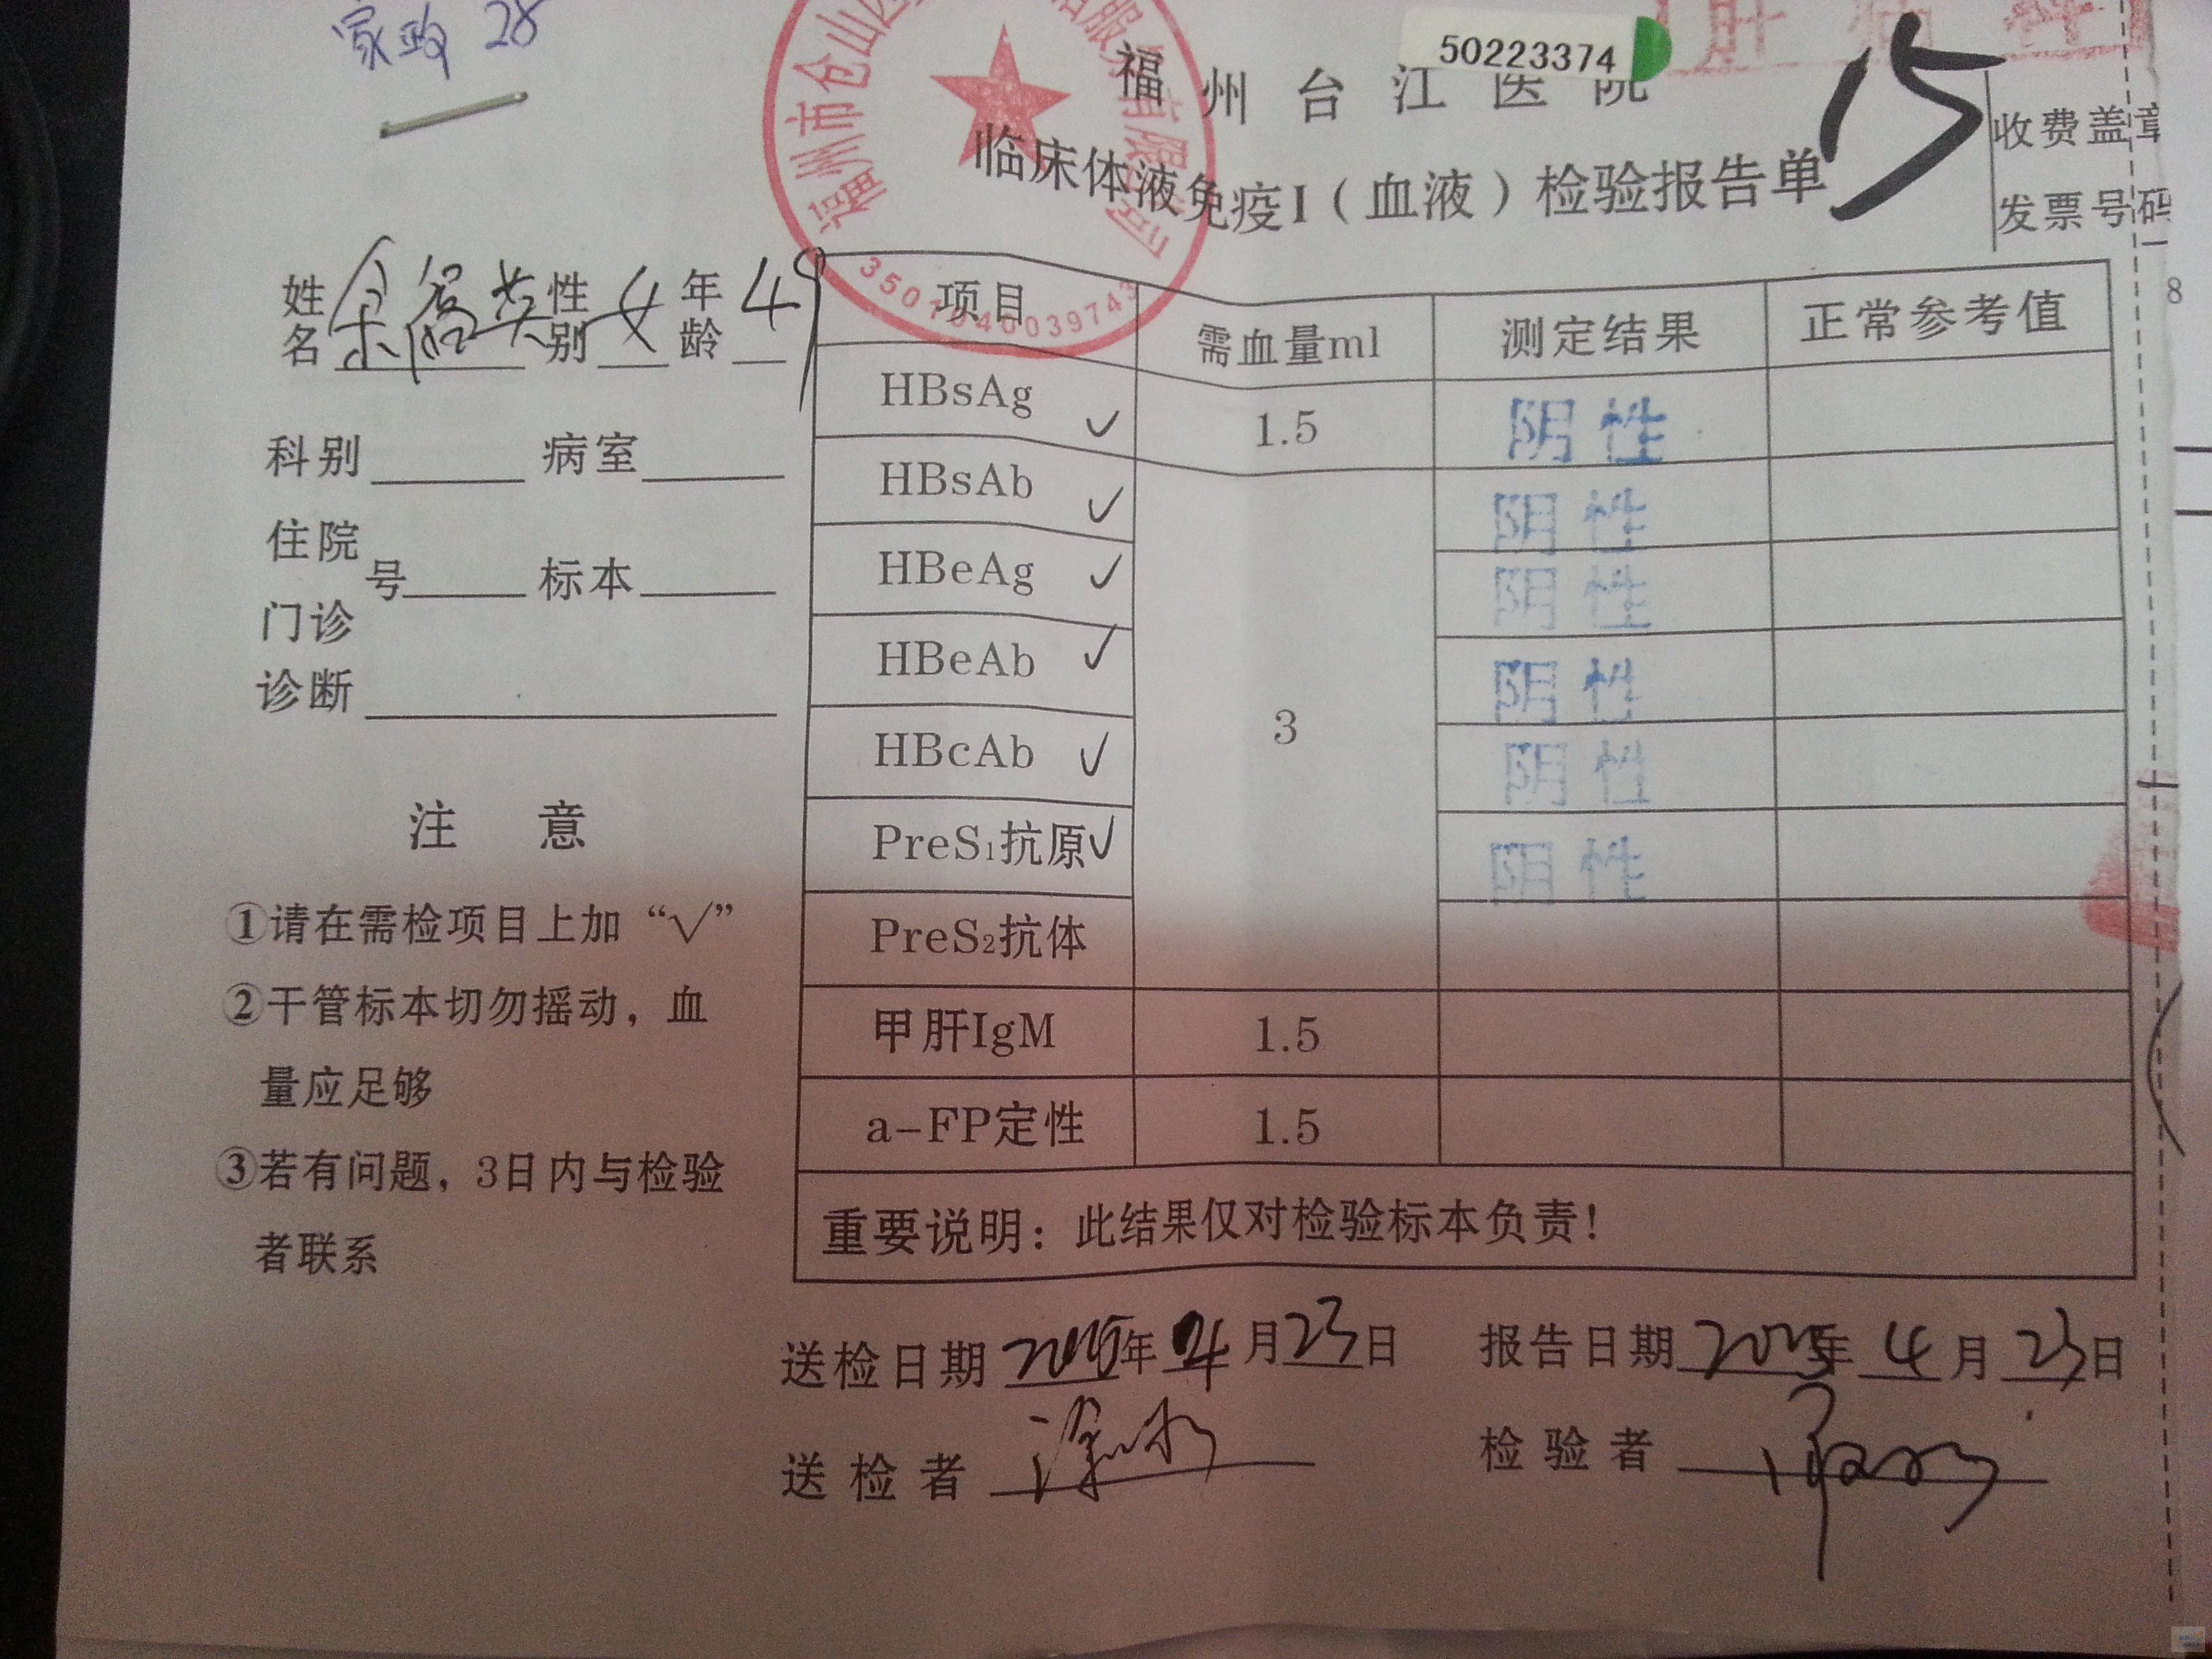 家政 28
50223374
福州台江医院
15
临床体液免疫I（血液）检验报告单
收费盖章
发票号码
姓名 性别 女 年龄 49
科别 病室
住院
门诊 号 标本
诊断
注 意
①请在需检项目上加“√”
②干管标本切勿摇动，血
量应足够
③若有问题，3日内与检验
者联系
项目 需血量ml 测定结果 正常参考值
HBsAg ✓ 1.5 阴性
HBsAb ✓ 阴性
HBeAg ✓ 阴性
HBeAb ✓ 3 阴性
HBcAb ✓ 阴性
PreS₁抗原 ✓ 阴性
PreS₂抗体
甲肝IgM 1.5
a-FP定性 1.5
重要说明：此结果仅对检验标本负责！
送检日期 2015年 4月23日 报告日期 2015年 4月23日
送检者 检验者
3501040039743